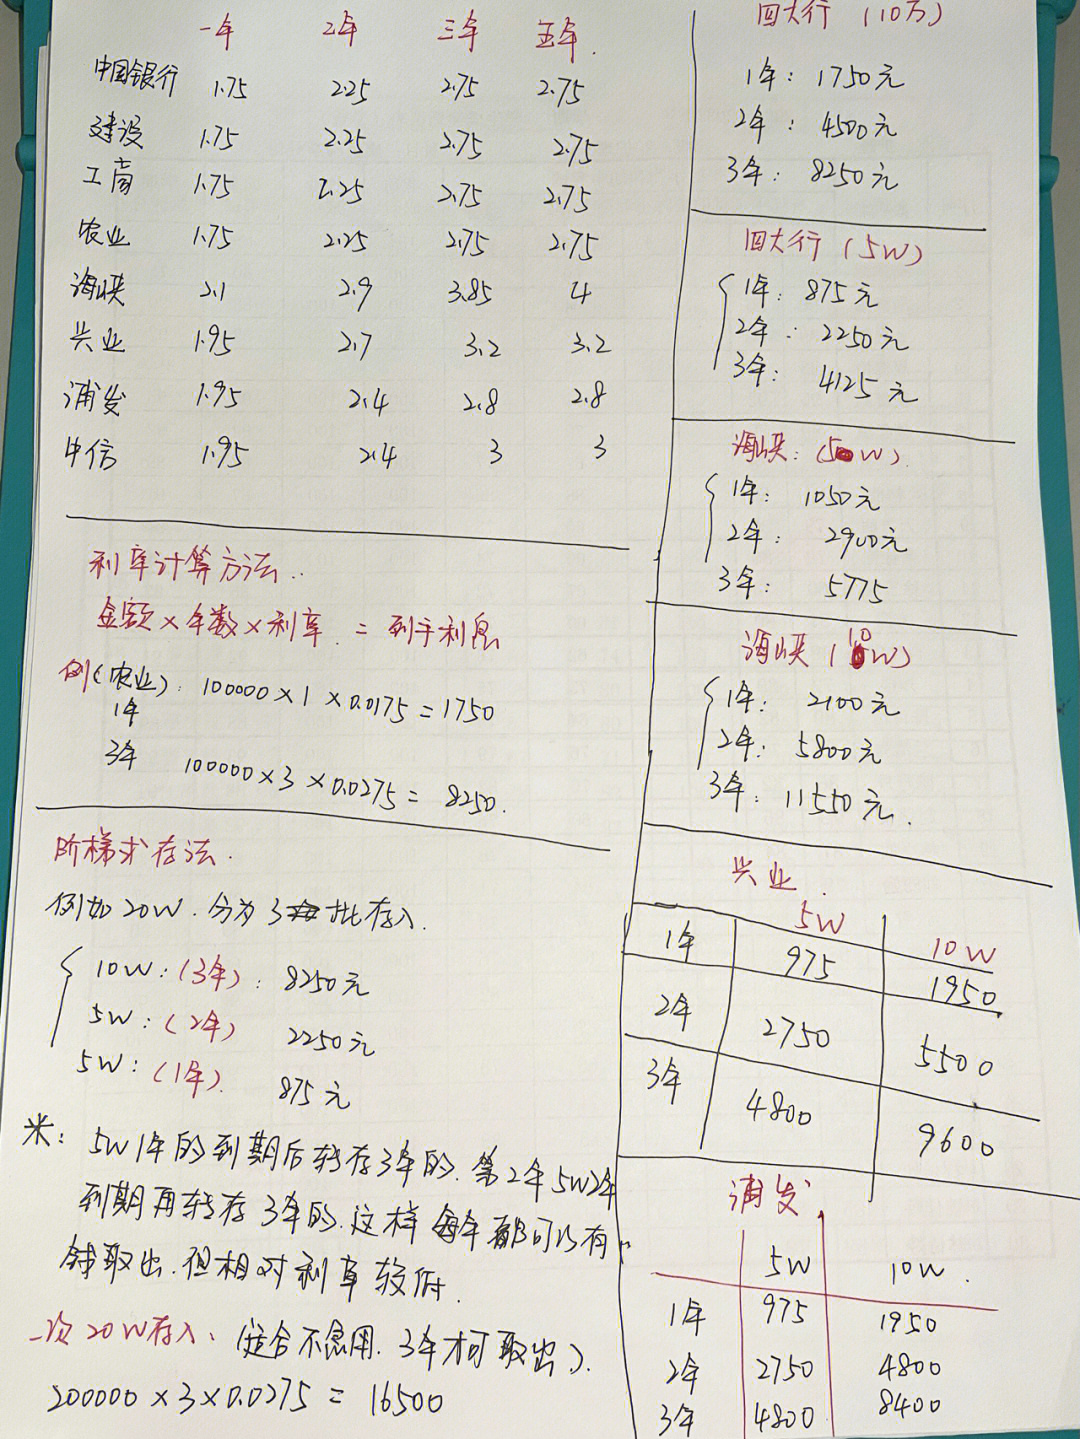 一年 2年 三年 五年.
中国银行 1.75 2.25 2.75 2.75
建设 1.75 2.25 2.75 2.75
工商 1.75 2.25 2.75 2.75
农业 1.75 2.25 2.75 2.75
海峡 2.1 2.9 3.85 4
兴业 1.95 2.7 3.2 3.2
浦发 1.95 2.4 2.8 2.8
中信 1.95 2.4 3 3
利率计算方法..
金额×年数×利率.=到手利息
例(农业): 100000×1×0.0175=1750
1年
3年 100000×3×0.0275=8250.
阶梯式存法.
例如20W.分为3批存入.
10W:(3年): 8250元
5W:(2年) 2250元
5W:(1年). 875元
米: 5W1年的到期后转存3年的.第2年5W2年
到期再转存3年的.这样每年都可以有
钱取出.但相对利率较低.
一次20W存入、(适合不急用.3年才可取出).
200000×3×0.0275=16500
四大行(10万)
1年: 1750元
2年: 4500元
3年: 8250元
四大行(5W)
1年: 875元
2年: 2250元
3年: 4125元
海峡:(5W).
1年: 1050元
2年: 2900元
3年: 5775
海峡(10W)
1年: 2100元
2年: 5800元
3年: 11550元.
兴业.
5W 10W
1年 975 1950
2年 2750 5500
3年 4800 9600
浦发
5W 10W.
1年 975 1950
2年 2750 4800
3年 4800 8400